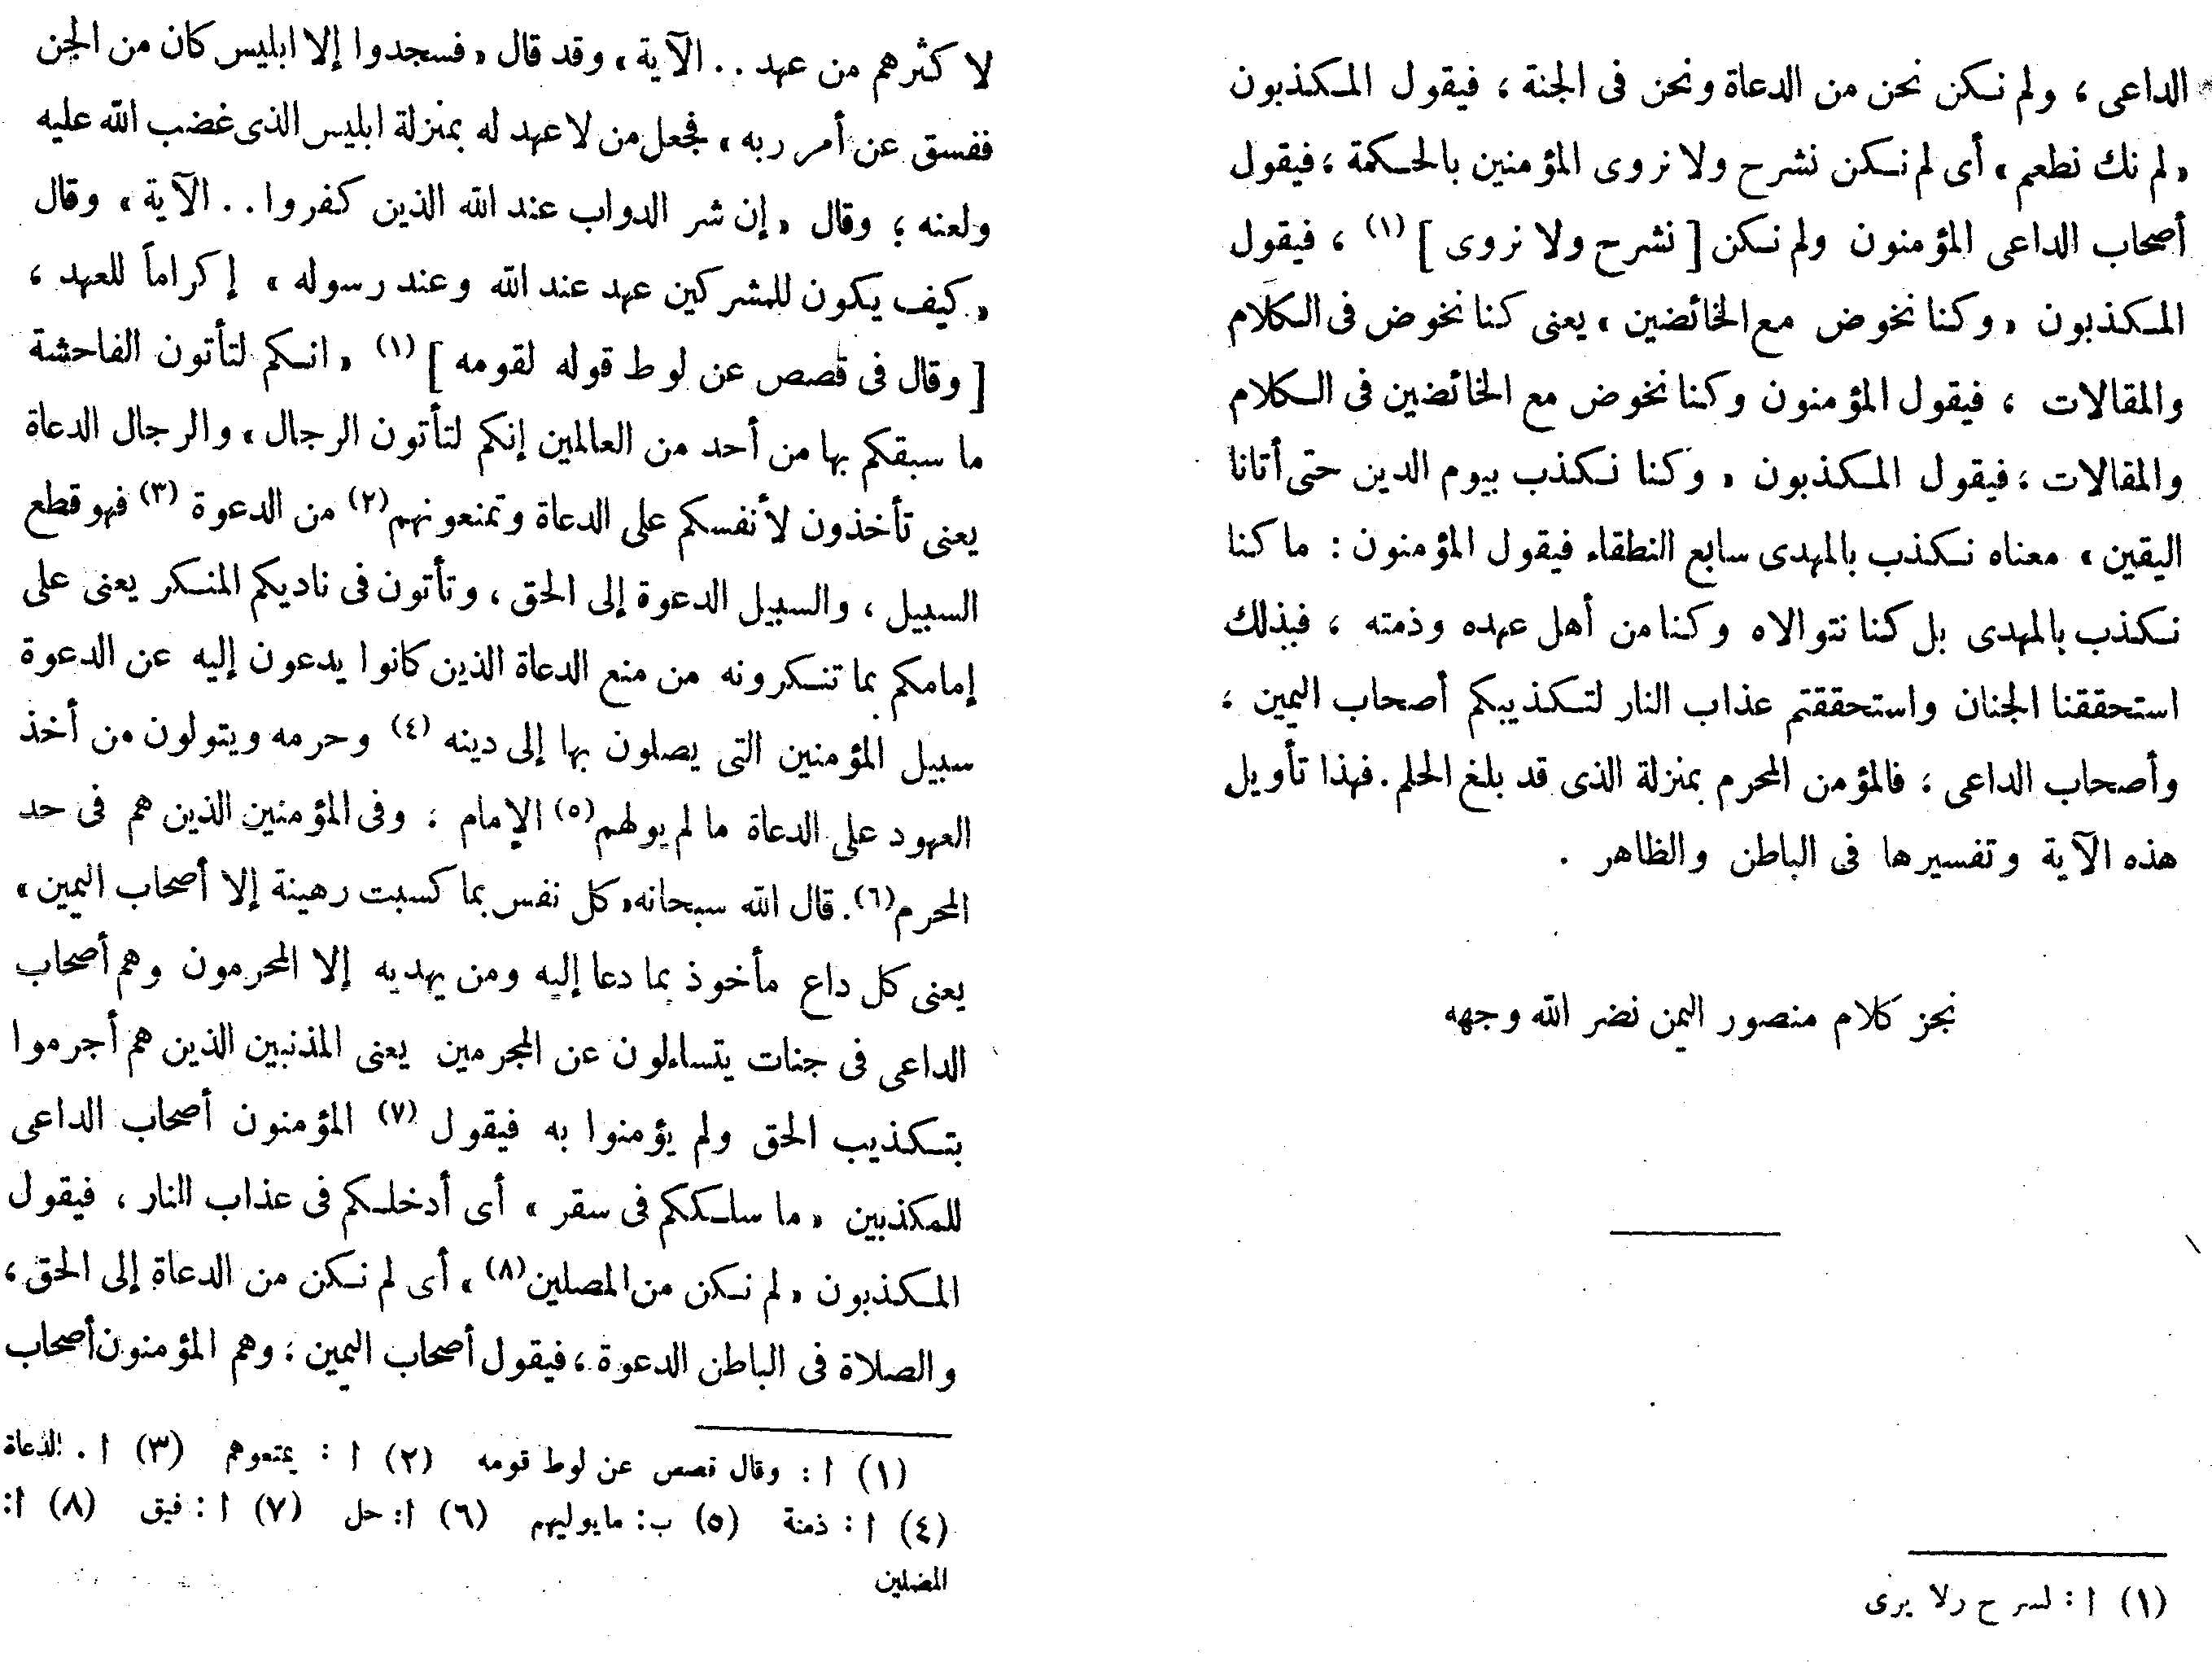 لا كثرهم من عهد . . الآية » وقد قال « فسجدوا إلا ابليس كان من الجن
ففسق عن أمر ربه » فجعل من لا عهد له بمنزلة ابليس الذى غضب الله عليه
ولعنه ؛ وقال « إن شر الدواب عند الله الذين كفروا . . الآية » وقال
« كيف يكون للمشركين عهد عند الله وعند رسوله » إكراماً للعهد ،
[ وقال فى قصص عن لوط قوله لقومه ] (١) « انكم لتأتون الفاحشة
ما سبقكم بها من أحد من العالمين إنكم لتأتون الرجال » والرجال الدعاة
يعنى تأخذون لأنفسكم على الدعاة وتمنعونهم (٢) من الدعوة (٣) فهو قطع
السبيل ، والسبيل الدعوة إلى الحق ، وتأتون فى ناديكم المنكر يعنى على
إمامكم بما تنكرونه من منع الدعاة الذين كانوا يدعون إليه عن الدعوة
سبيل المؤمنين التى يصلون بها إلى دينه (٤) وحرمه ويتولون من أخذ
العهود على الدعاة ما لم يولهم (٥) الإمام ؛ وفى المؤمنين الذين هم فى حد
المحرم (٦) . قال الله سبحانه « كل نفس بما كسبت رهينة إلا أصحاب اليمين »
يعنى كل داع مأخوذ بما دعا إليه ومن يهديه إلا المحرمون وهم أصحاب
الداعى فى جنات يتساءلون عن المجرمين يعنى المذنبين الذين هم أجرموا
بتكذيب الحق ولم يؤمنوا به فيقول (٧) المؤمنون أصحاب الداعى
للمكذبين « ما سلككم فى سقر » أى أدخلكم فى عذاب النار ، فيقول
المكذبون « لم نكن من المصلين (٨) » أى لم نكن من الدعاة إلى الحق ،
والصلاة فى الباطن الدعوة ، فيقول أصحاب اليمين ؛ وهم المؤمنون أصحاب
(١) ا : وقال قصص عن لوط قومه (٢) ا : يمتعوهم (٣) ا . الدعاة
(٤) ا : ذمنة (٥) ب : مايوليهم (٦) ا : حل (٧) ا : فيق (٨) ا :
المضلين
الداعى ، ولم نكن نحن من الدعاة ونحن فى الجنة ، فيقول المكذبون
« لم نك نطعم » أى لم نكن نشرح ولا نروى المؤمنين بالحكمة ، فيقول
أصحاب الداعى المؤمنون ولم نكن [ نشرح ولا نروى ] (١) ، فيقول
المكذبون « وكنا نخوض مع الخائضين » يعنى كنا نخوض فى الكلام
والمقالات ، فيقول المؤمنون وكنا نخوض مع الخائضين فى الكلام
والمقالات ؛ فيقول المكذبون « وكنا نكذب بيوم الدين حتى أتانا
اليقين » معناه نكذب بالمهدى سابع النطقاء فيقول المؤمنون : ما كنا
نكذب بالمهدى بل كنا نتوالاه وكنا من أهل عهده وذمته ، فبذلك
استحققنا الجنان واستحققتم عذاب النار لتكذيبكم أصحاب اليمين ،
وأصحاب الداعى ؛ فالمؤمن المحرم بمنزلة الذى قد بلغ الحلم . فهذا تأويل
هذه الآية وتفسيرها فى الباطن والظاهر .
نجز كلام منصور اليمن نضر الله وجهه
(١) ا : لسرح ولا يرى